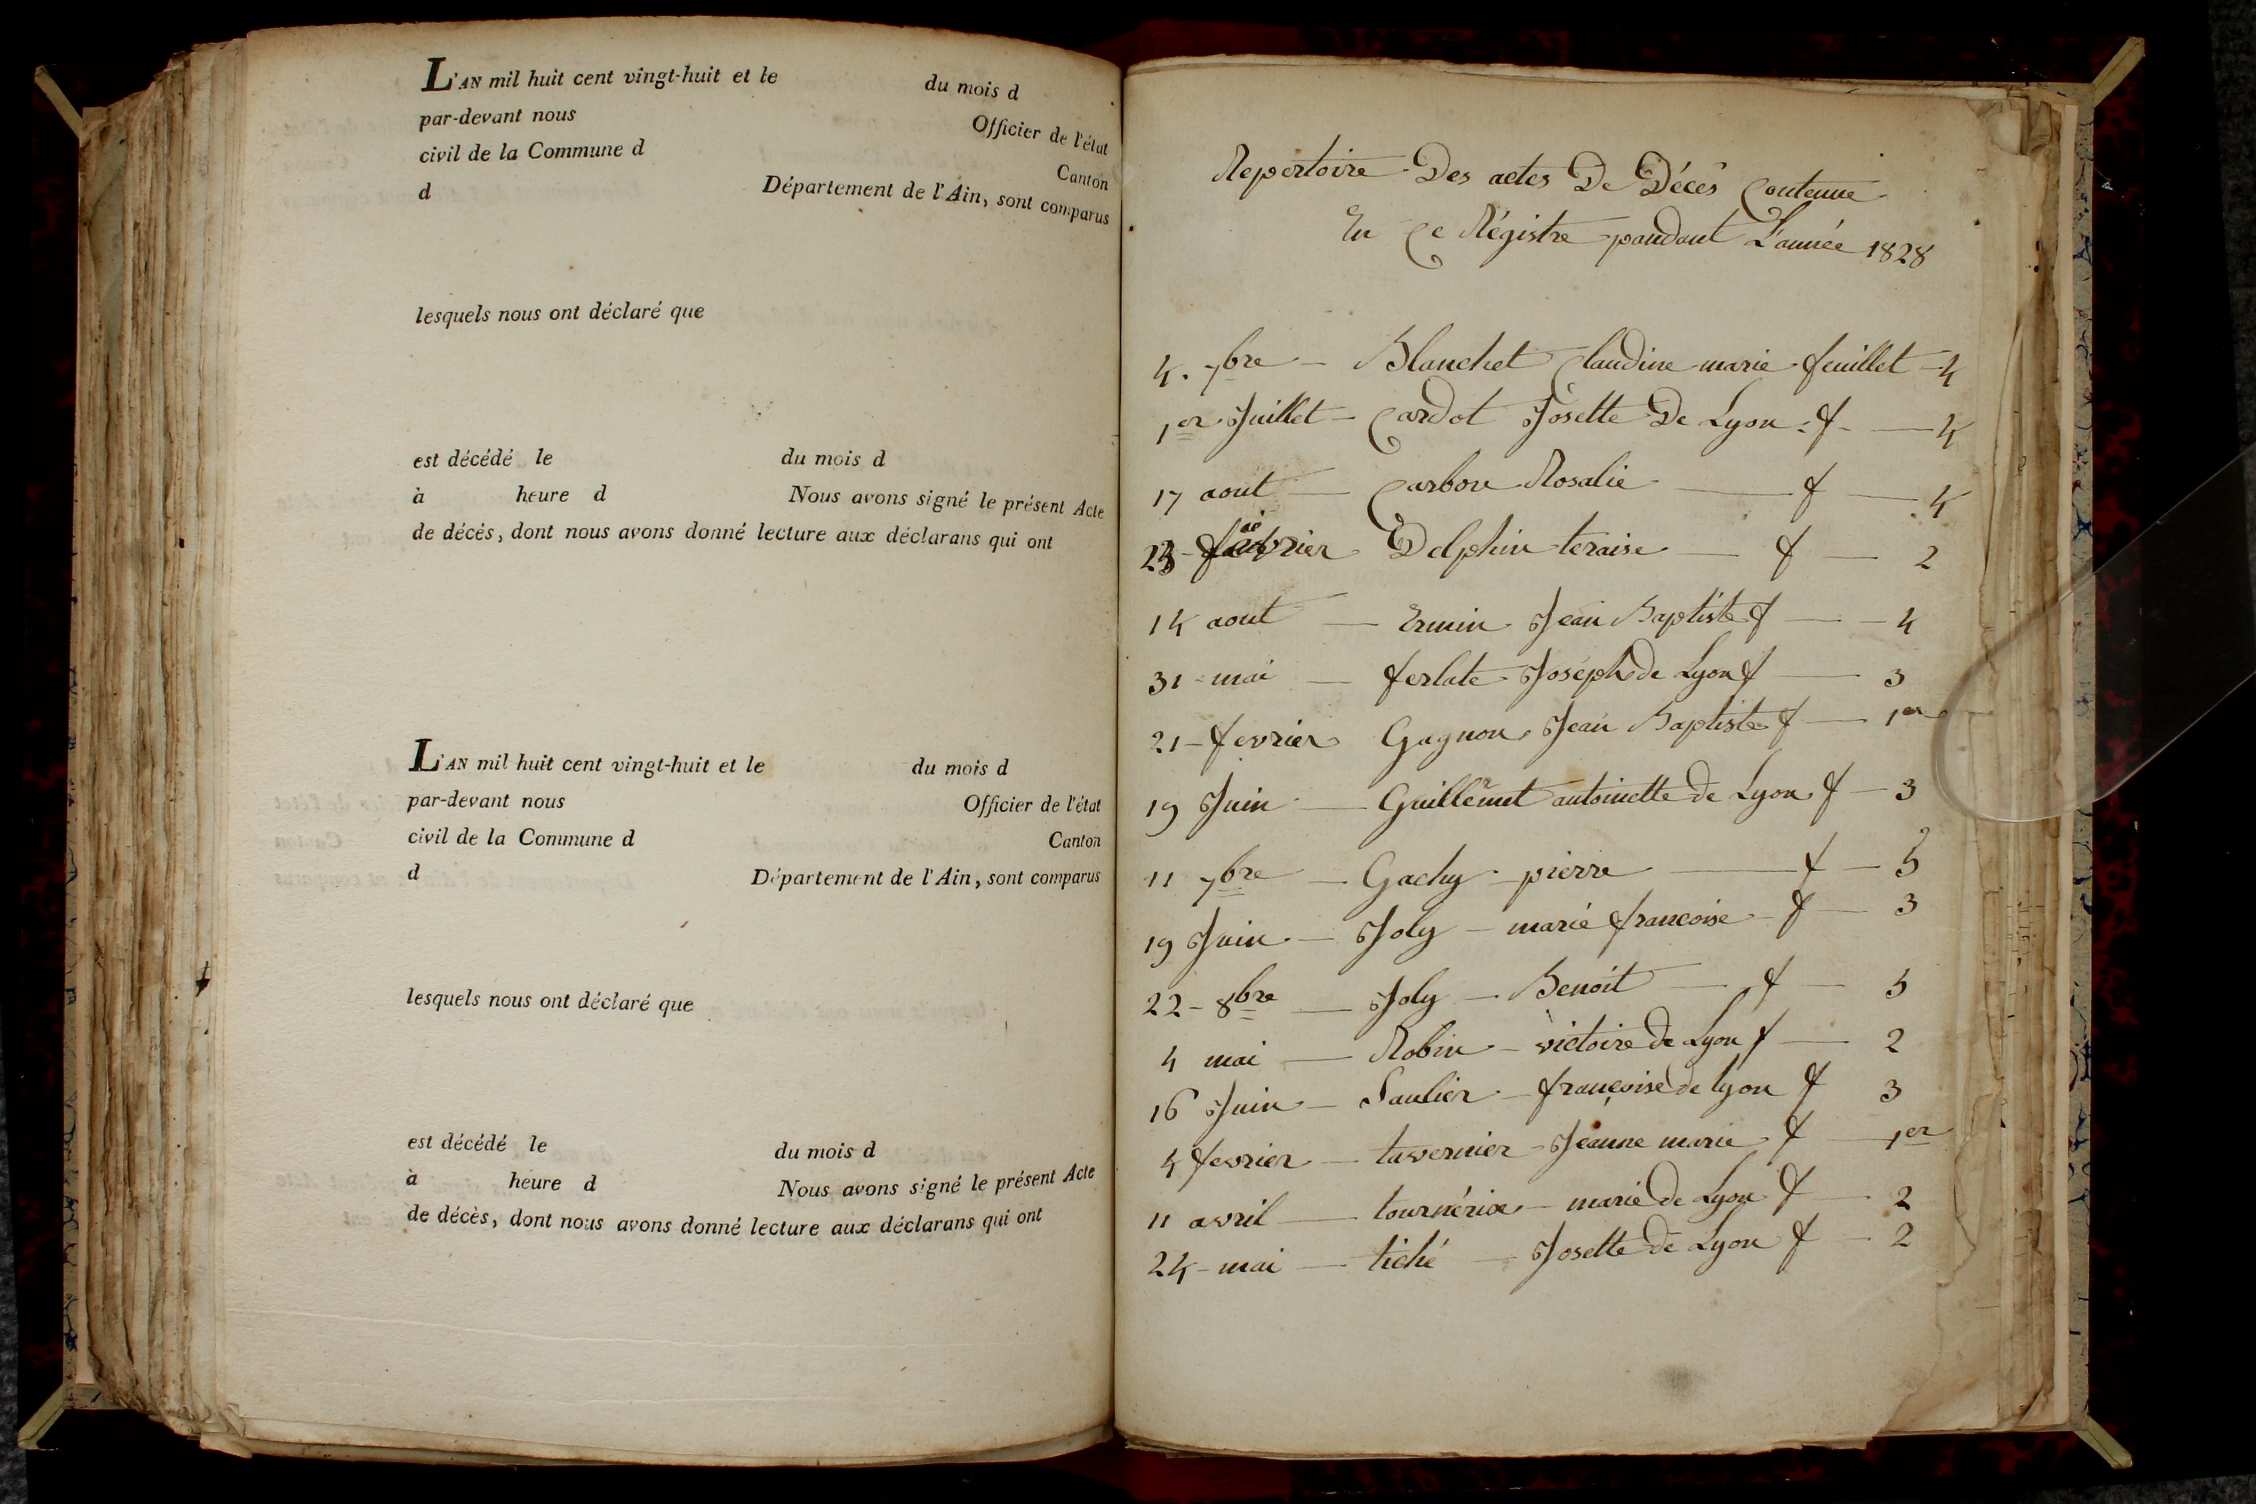 L'AN mil huit cent vingt-huit et le du mois d
par-devant nous Officier de l'état
civil de la Commune d Canton
d Département de l'Ain, sont comparus
lesquels nous ont déclaré que
est décédé le du mois d
à heure d Nous avons signé le présent Acte
de décès, dont nous avons donné lecture aux déclarans qui ont
L'AN mil huit cent vingt-huit et le du mois d
par-devant nous Officier de l'état
civil de la Commune d Canton
d Département de l'Ain, sont comparus
lesquels nous ont déclaré que
est décédé le du mois d
à heure d Nous avons signé le présent Acte
de décès, dont nous avons donné lecture aux déclarans qui ont
Repertoire Des actes De Décès Contenue
En Ce Régistre pandant L'année 1828
4. 7bre - Blanchet Claudine marie feuillet - 4
1er Juillet - Cardot Josette De Lyon f - 4
17 aout - Carbon Rosalie - f - 4
Delphin teraise - f - 2
14 aout - Ermin Jean Baptiste f - 4
31 mai - ferlate Joséph de Lyon f - 3
21 - fevrier Gagnon Jean Baptiste f - 1er
19 Juin - antoinette de Lyon f - 3
11 7bre - Gachy - pierre - f - 5
19 Juin - Joly - marie françoise - f - 3
22 - 8bre - Joly - Benoit - f - 5
4 mai - Robin - victoire de Lyon f - 2
16 Juin - Saulier - françoise de lyon f 3
4 fevrier - tavernier - Jeanne marie f - 1er
11 avril - - marie de Lyon f - 2
24 - mai - tiché - Josette de Lyon f - 2